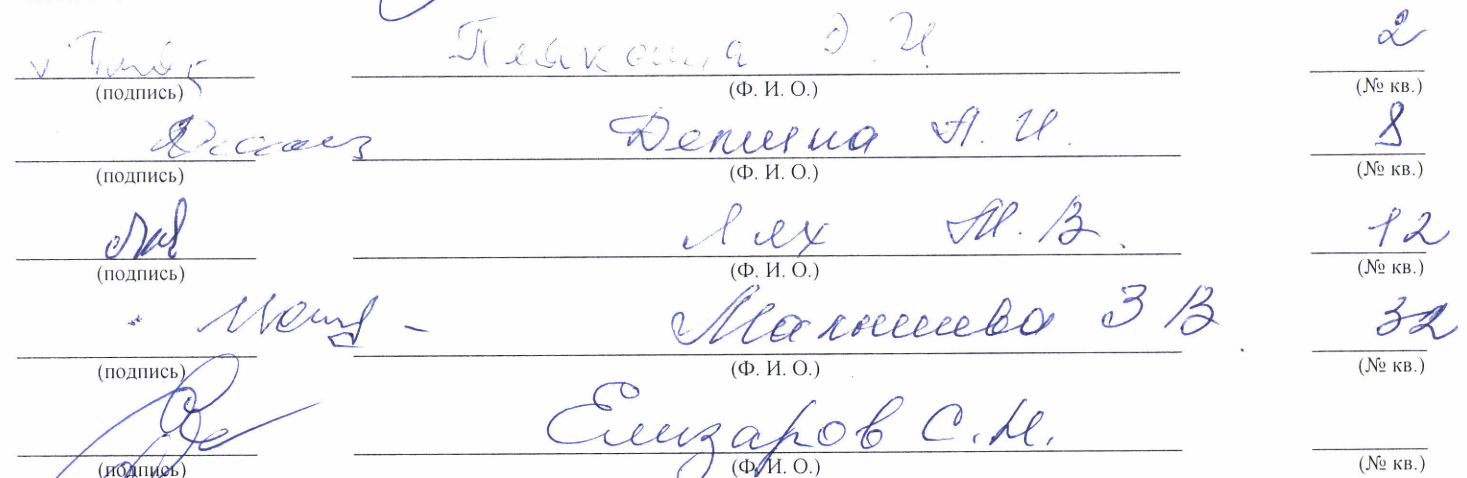 2
(подпись) (Ф. И. О.) (№ кв.)
Депина А. И. 8
(подпись) (Ф. И. О.) (№ кв.)
Лях Т. В. 12
(подпись) (Ф. И. О.) (№ кв.)
Малышева З В. 32
(подпись) (Ф. И. О.) (№ кв.)
Елизаров С. М.
(подпись) (Ф. И. О.) (№ кв.)